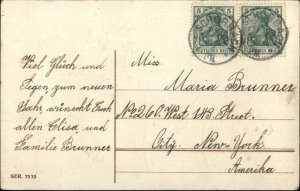 Viel Glück und
Segen zum neuen
Jahr, wünscht Euch
allen Elisa und
Familie Brunner
SER. 1910
5 5
DEUTSCHES REICH
Miss
Maria Brunner
No 260. West 143. Street.
City. New-York
Amerika